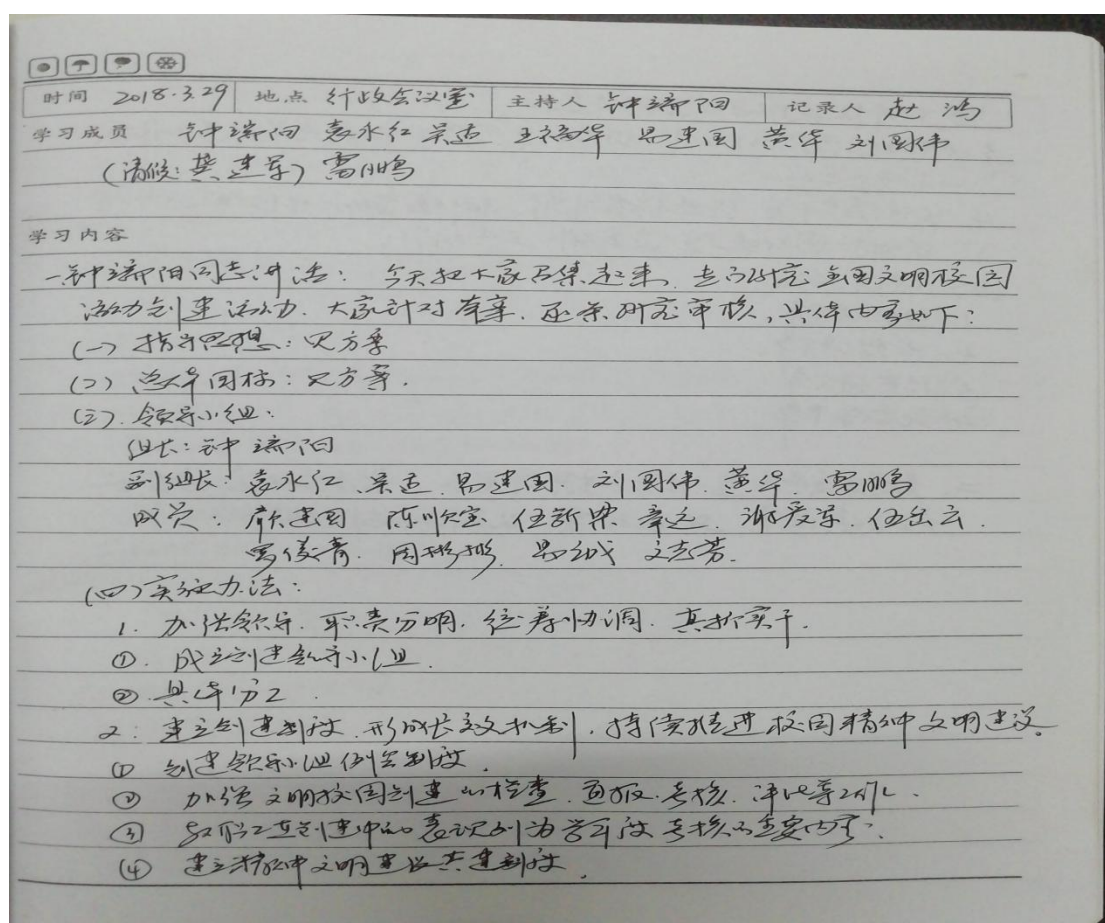 时间 2018.3.29 地点 行政会议室 主持人 钟端阳 记录人 赵鸿
学习成员 钟端阳 袁永红 吴适 王福华 易建国 黄华 刘国伟
(请假:龚建军) 雷鹏
学习内容
一.钟端阳同志讲话: 今天把大家召集起来,是研究全国文明校园
活动创建活动.大家针对方案.逐条研究审核,具体内容如下:
(一)指导思想:见方案
(二)总体目标:见方案.
(三).领导小组:
组长:钟端阳
副组长:袁永红、吴适.易建国.刘国伟.黄华.雷鹏
成员: 建国 陈顺宝 伍新 谢爱军.伍出云.
罗俊青. 周彬彬. 易诚 文志芳.
(四)实施办法:
1.加强领导.职责分明.统筹协调.真抓实干.
①.成立创建领导小组.
②.具体分工.
2:建立创建制度.形成长效机制.持续推进校园精神文明建设.
① 创建领导小组例会制度.
② 加强文明校园创建的检查.通报.考核.评比等工作.
③ 教职工在创建中的表现列为学年度考核的重要内容.
④ 建立精神文明建设共建制度.